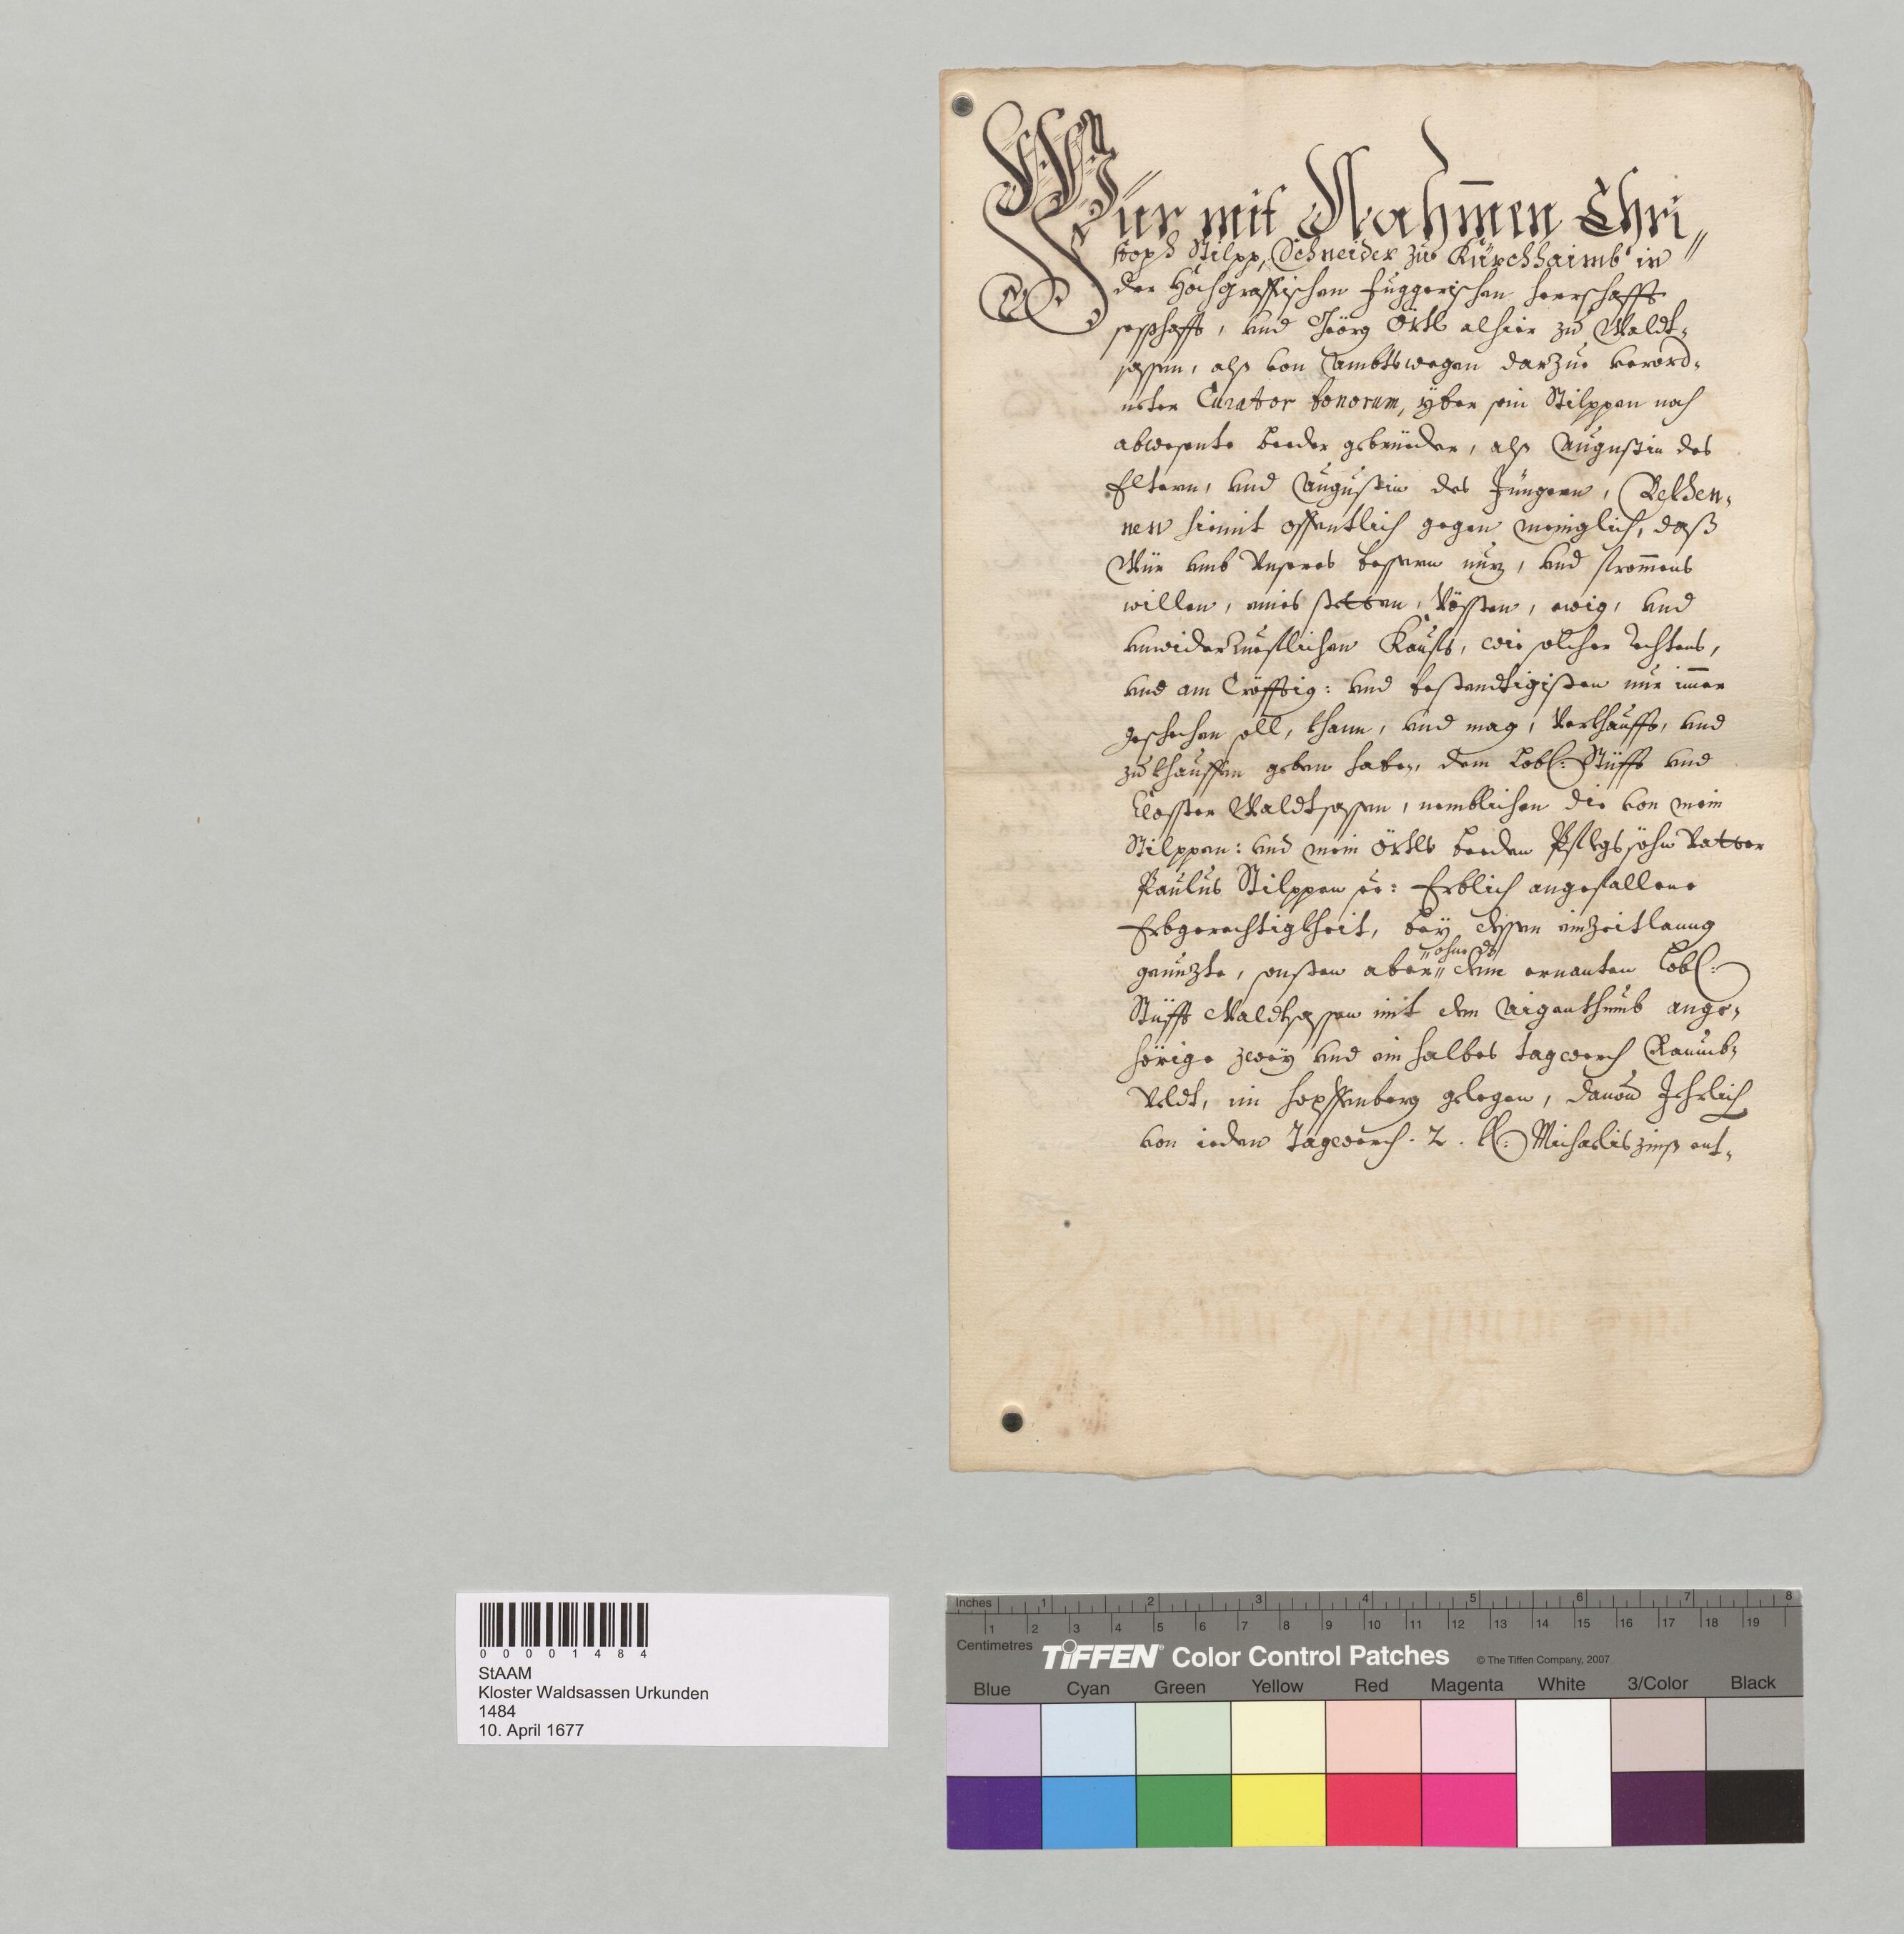 Wür mit Nahm̄en Chri„
stoph Stilpp, Schneider zu Kürchhaimb in
der Hochgräffischen Fuggerischen herrschafft
seßhafft, vnd Geörg Örtl alhier zu Waldt-
sassen, alß von Ambtswegen darzue verord-
neter Curator bonorum, yber sein Stilppen noch
abwesente beeder gebrüeder, alß Augustin des
Eltern, vnd Augustin des Jüngern, Bekhen-
nen hiemit offentlich gegen meniglich, daß
Wür vmb Vnseres bessern nuz, vnd from̄ens
willen, eines stetten, Vössten, ewig, vnd
vnwiderrueflichen Kaufs, wie solcher rechtens,
vnd am Cröfftig: vnd bestendtigisten nur im̄er
geschechen soll, khann, vnd mag, Verkhaufft, vnd
zukhauffen geben haben, dem Löbl: Stüfft vnd
Closter Waldtsassen, nemblichen die von mein
Stilppen: vnd mein Örtls beeden Pflegsöhn Vatter
Paulus Stilppen see: Erblich angefallene
Erbgerechtigkheit, bey dessen einzeitlanng
genuzte, sonsten aber„ „ohne ds dem ernanten Löbl:
Stüfft Waldtsassen mit dem Aigenthumb ange-
hörige zwey vnd ein halbes tagwerch Raumb-
Veldt, im hopffenberg gelegen, dauon Jehrlich
von ieden Tagwerch . 2 . kl: Michaeliszinß ent-
0 0 0 0 1 4 8 4
StAAM
Kloster Waldsassen Urkunden
1484
10. April 1677
Inches 1 2 3 4 5 6 7 8
1 2 3 4 5 6 7 8 9 10 11 12 13 14 15 16 17 18 19
Centimetres
TIFFEN® Color Control Patches © The Tiffen Company, 2007
Blue Cyan Green Yellow Red Magenta White 3/Color Black